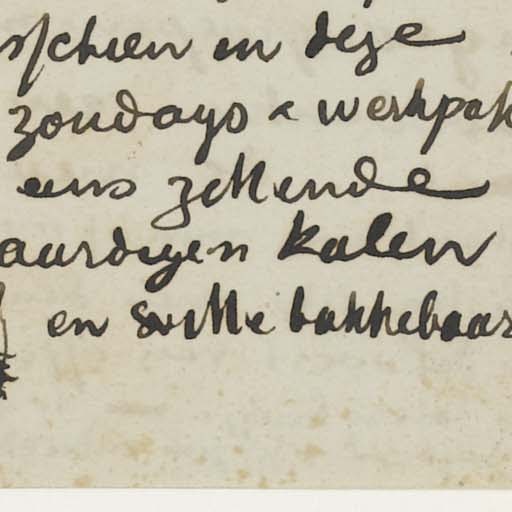 sschien in deze
zondags & werkpak
ens zettende
aardigen kalen
en witte bakkebaar